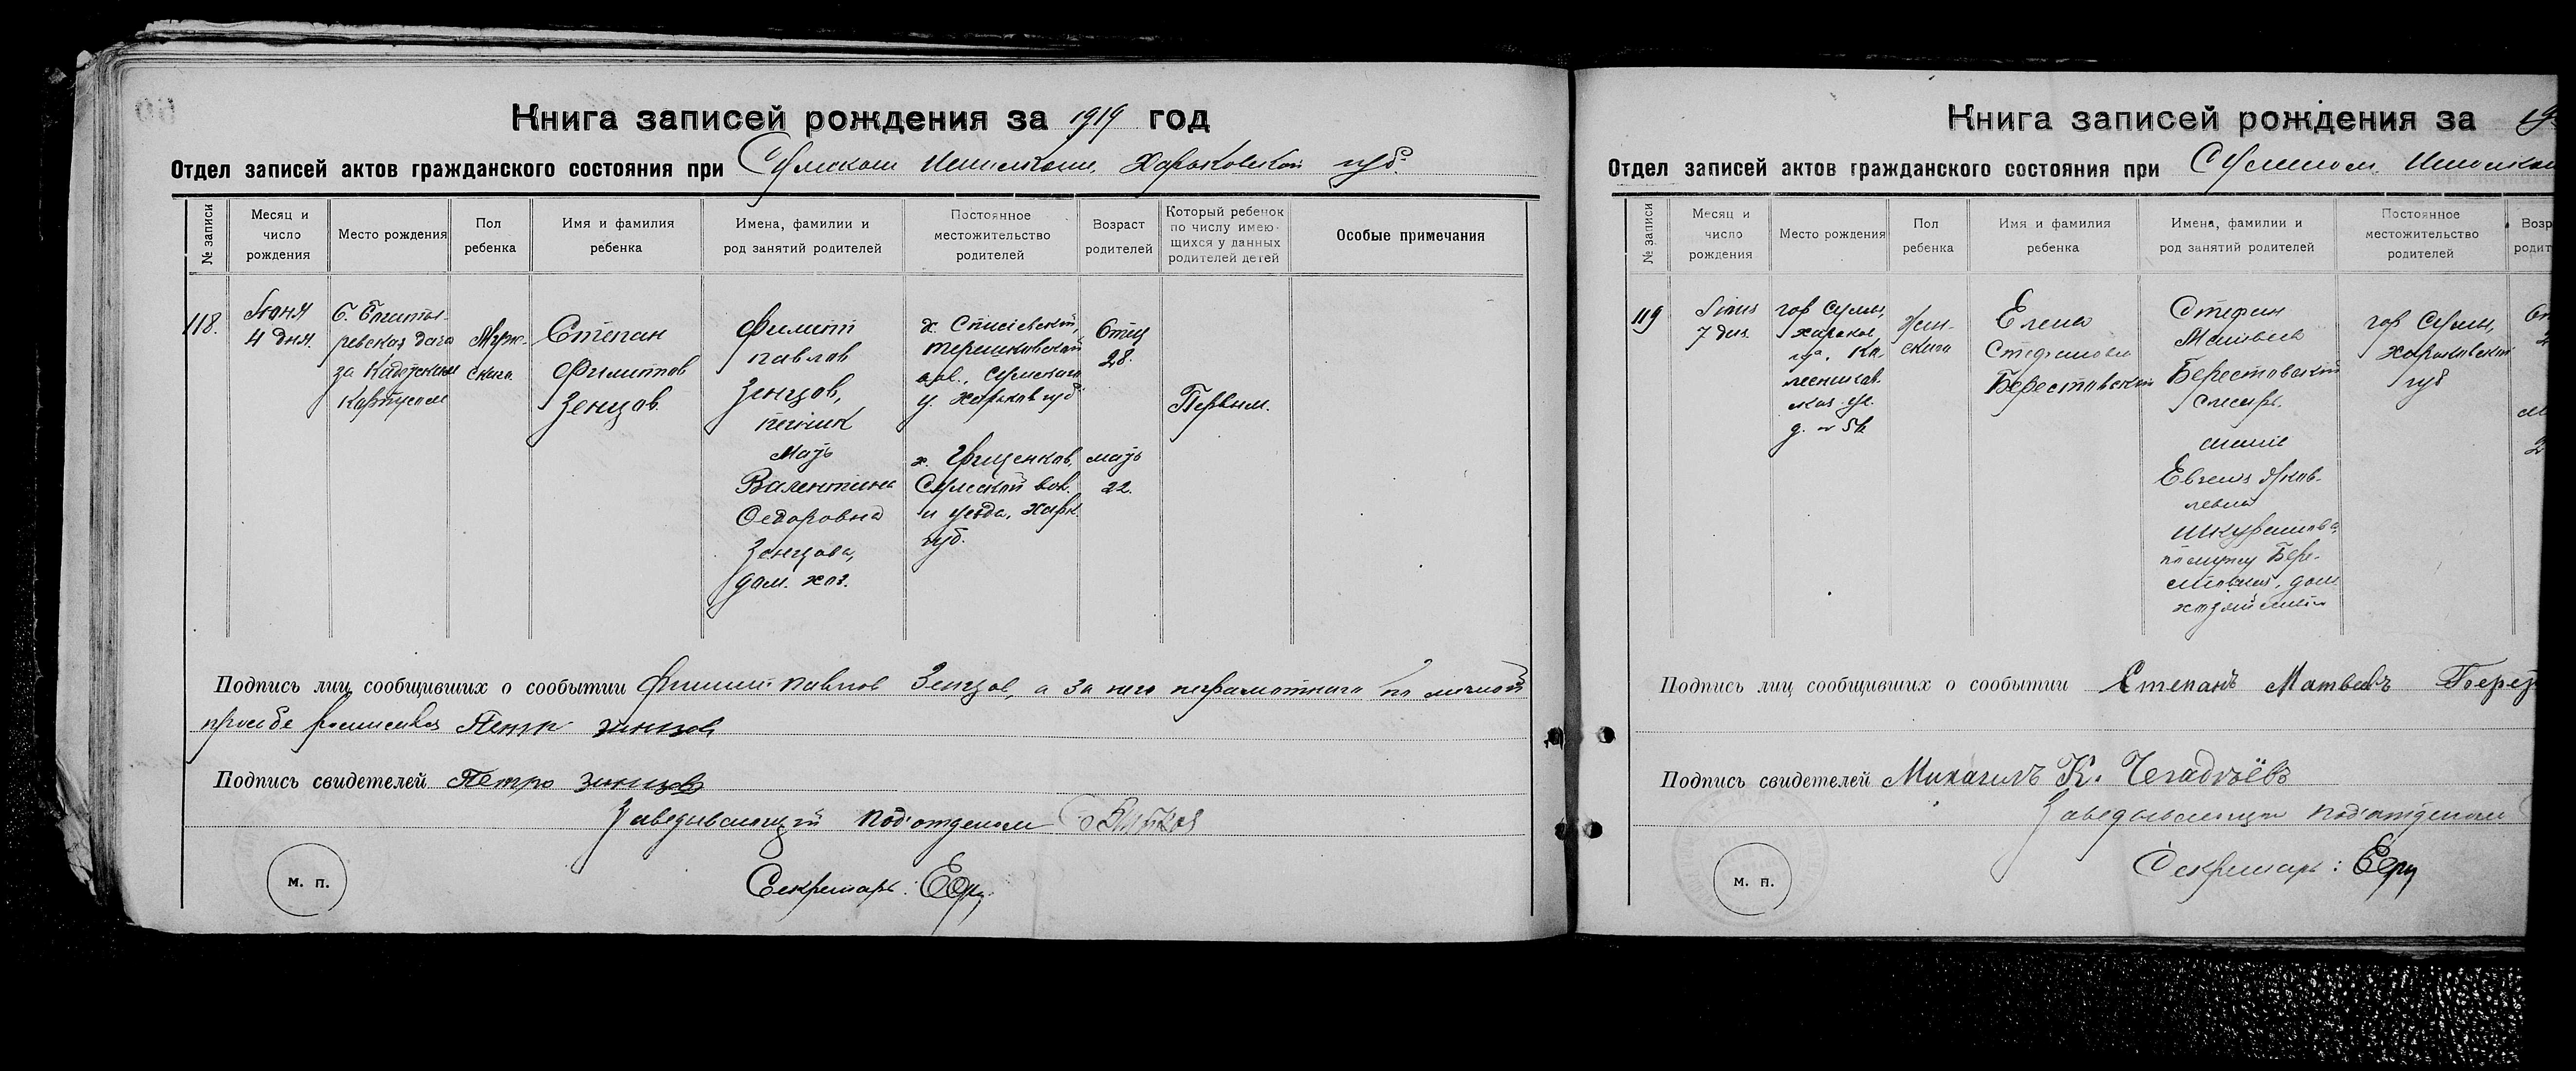 Книга записей рождения за 1919 год
Отдел записей актов гражданского состояния при Сумском Исполкоме, Харьковской губ.
№ записи
Месяц и число рождения
Место рождения
Пол ребенка
Имя и фамилия ребенка
Имена, фамилии и род занятий родителей
Постоянное местожительство родителей
Возраст родителей
Который ребенок по числу имеющихся у данных родителей детей
Особые примечания
118.
Июня
4 дня.
ревская дача
за Кадетским
корпусом
Муж-
ского
Степан
Филиппов
Зенцов.
Филипп
Павлов
Зенцов,
печник
Мать
Валентина
Федоровна
Зенцова,
дом. хоз.
х.
Терешковской
вол., Сумского
у. Харьков губ
х. Грищенков,
Сумской вол.
и уезда, Харк.
губ.
Отец
28.
мать
22.
Первым.
Подпись лиц сообщивших о сообытии Филипп Павлов Зенцов, а за него неграмотного по личной
просьбе росписался Петр зинцов
Подпись свидетелей Петро зинцов
Заведывающий Подотделом
Секретарь:
м. п.
Книга записей рождения за 19
Отдел записей актов гражданского состояния при Сумском Исполком
№ записи
Месяц и число рождения
Место рождения
Пол ребенка
Имя и фамилия ребенка
Имена, фамилии и род занятий родителей
Постоянное местожительство родителей
Возр
родит
119
7 дня
гор Сумы,
Харьков,
губ.
д. №
Жен-
ского
Елена
Стефановна
Берестовская
Стефан
Матвеев
Берестовский
слесарь.
Евгения Яков-
левна
по мужу Бере-
стовская, дом.
хозяйство
гор Сумы,
Харьковской
губ
Подпись лиц сообщивших о сообытии Степанъ Матвевъ
Подпись свидетелей Михаилъ К.
Заведывающий подотделом
Секретарь:
м. п.